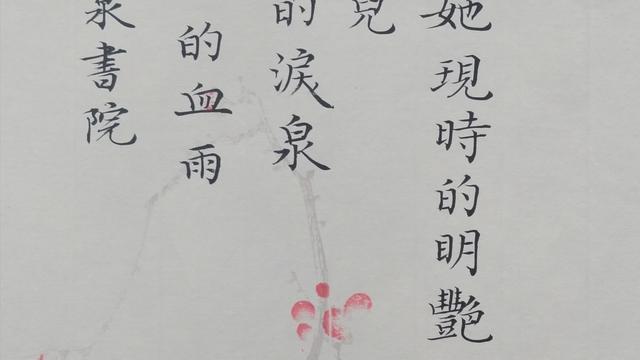 她現時的明艷
兒
的淚泉
的血雨
泉書院